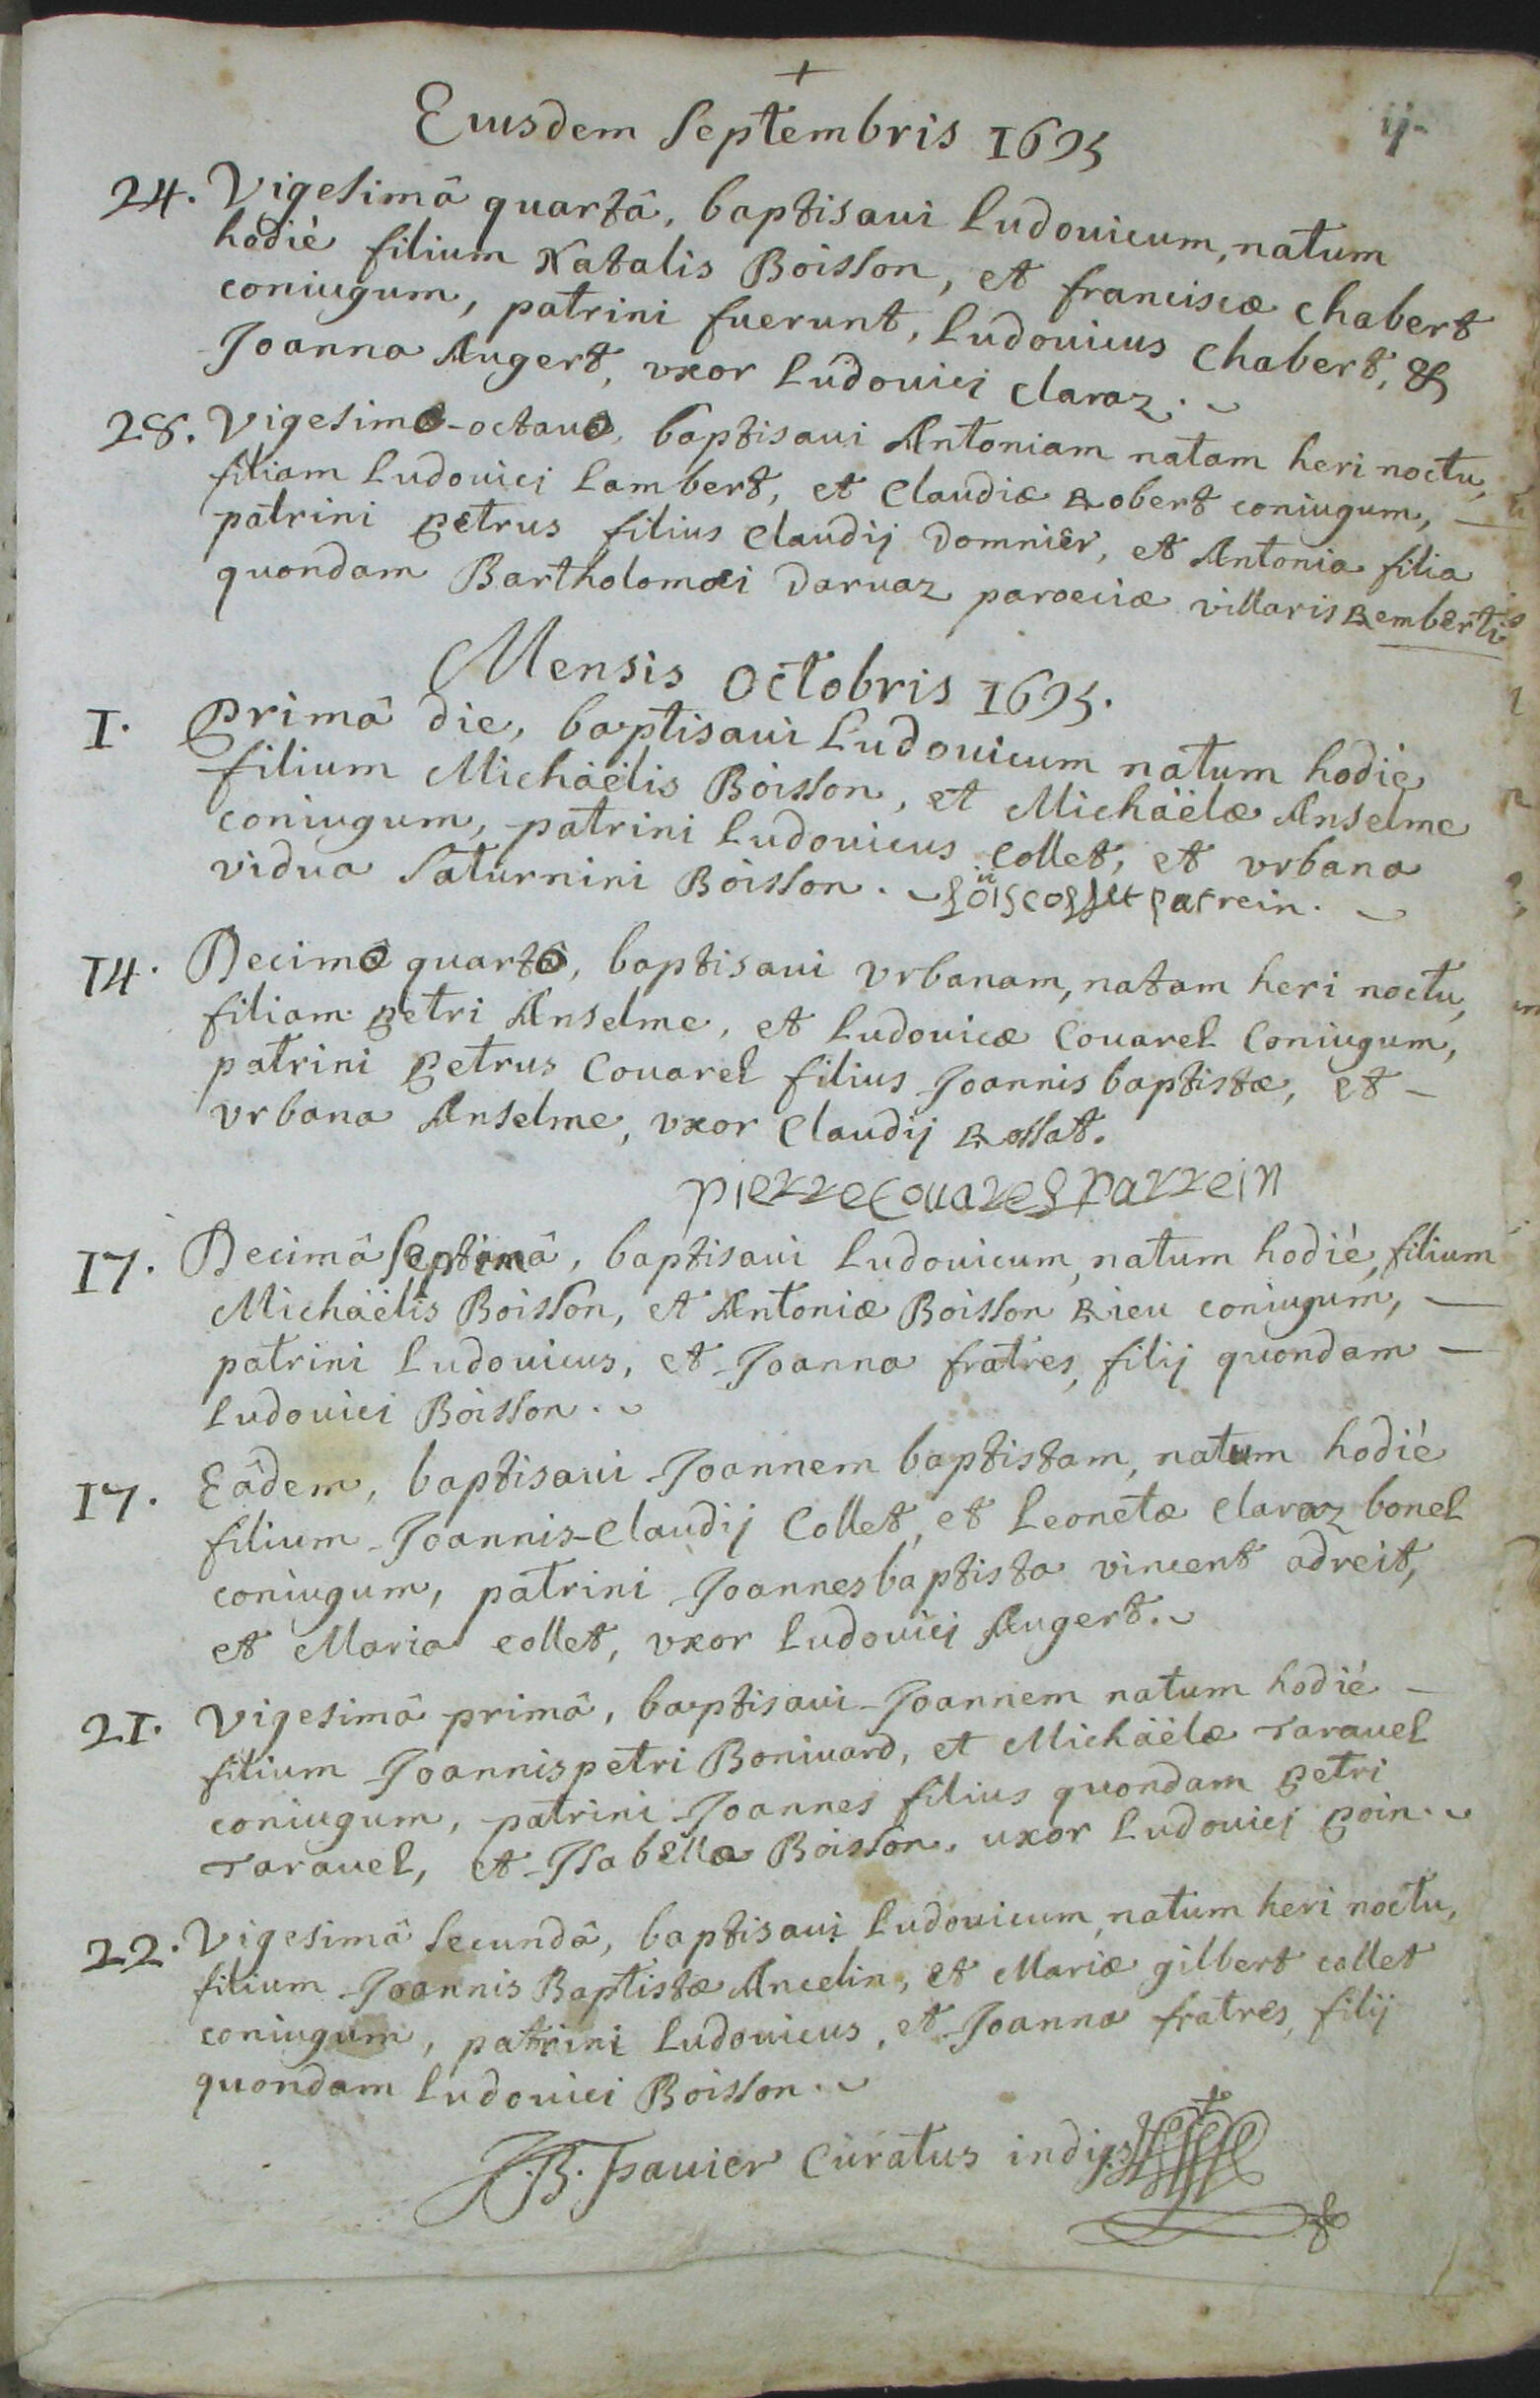 +
Eiusdem Septembris 1695
ij.
24. Vigesimâ quartâ, baptisaui Ludouicum, natum
hodiè filium Natalis Boisson, et franciscæ Chabert
coniugum, patrini fuerunt, Ludouicus Chabert, &
Joanna Augert, vxor Ludouici Claraz.
28. Vigesimo-octauo, baptisaui Antoniam natam heri noctu,
filiam Ludouici Lambert, et Claudiæ Robert coniugum, —
patrini Petrus filius Claudij Domnier, et Antonia filia
quondam Bartholomæi Daruaz paroeciæ villaris Remberti
Mensis Octobris 1695.
1. Primâ die, baptisaui Ludouicum natum hodiè
filium Michäëlis Boisson, et Michäëlæ Anselme
coniugum, patrini Ludouicus Collet, et vrbana
vidua Saturnini Boisson. Loüis collet parrein.
14. Decimo quarto, baptisaui vrbanam, natam heri noctu,
filiam Petri Anselme, et Ludouicæ Couarel Coniugum,
patrini Petrus Couarel filius Joannis baptistæ, et —
vrbana Anselme, vxor Claudij Rossat.
pierre couarel parrein
17. Decimâ Septimâ, baptisaui Ludouicum, natum hodiè, filium
Michäëlis Boisson, et Antoniæ Boisson Rieu coniugum, —
patrini Ludouicus, et Joanna fratres, filij quondam —
Ludouici Boisson.
17. Eâdem, baptisaui Joannem baptistam, natum hodiè
filium Joannis-Claudij Collet, et Leonetæ Claraz bonel
coniugum, patrini Joannes baptista vincent adreit,
et Maria collet, vxor Ludouici Augert.
21. Vigesimâ primâ, baptisaui Joannem natum hodiè —
filium Joannis petri Boniuard, et Michäëlæ Tarauel
coniugum, patrini Joannes filius quondam Petri
Tarauel, et Isabella Boisson, uxor Ludouici Poin.
22. Vigesimâ Secundâ, baptisaui Ludouicum, natum heri noctu,
filium Joannis Baptistæ Ancelin, et Mariæ gilbert collet
coniugum, patrini Ludouicus, et Joanna fratres, filij
quondam Ludouici Boisson.
J.B. Pauier Curatus indig.